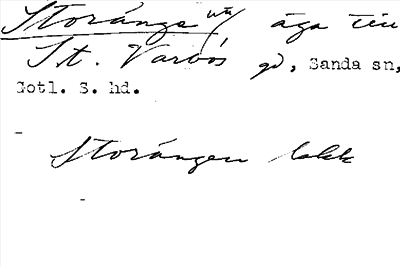 Storänge un/ äga till
St. Varbös gd, Sanda sn,
Gotl. S. hd.
Storängen lokk